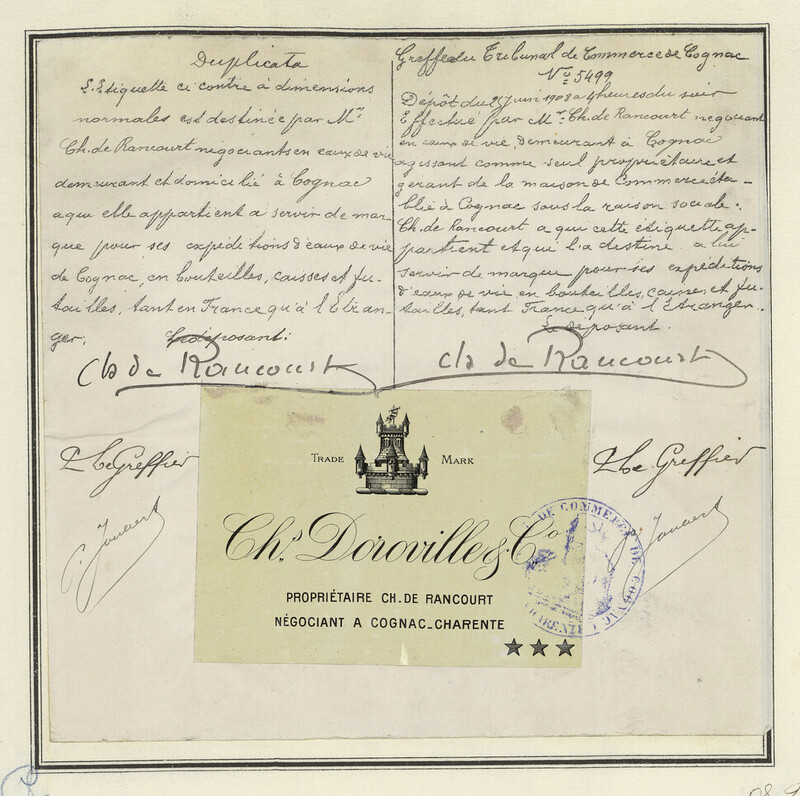 Duplicata
L'Etiquette ci contre à dimensions
normales est destinée par Mr.
Ch. de Rancourt négociants en eaux de vie
demeurant et domicilié à Cognac
a qui elle appartient a servir de mar-
que pour ses expéditions d'eaux de vie
de Cognac, en bouteilles, caisses et fu-
tailles, tant en France qu'à l'Etran-
ger:
Le déposant:
Ch de Rancourt
Greffe du Tribunal de Commerce de Cognac
No 5499
Dépôt du 25 juin 1908 a 4 heures du soir
Effectué par Mr. Ch. de Rancourt négociant
en eaux de vie, demeurant à Cognac
agissant comme seul propriétaire et
gérant de la maison de Commerce éta-
blie à Cognac sous la raison sociale:
Ch. de Rancourt a qui cette étiquette ap-
partient et qui l'a destine a lui
servir de marque pour ses expéditions
d'eaux de vie en bouteilles, caisses et fu-
tailles, tant France qu'à l'Etranger.
Le déposant.
Ch de Rancourt
Le Greffier
Le Greffier
TRADE MARK
Chs. Doroville & Co
PROPRIÉTAIRE CH. DE RANCOURT
NÉGOCIANT A COGNAC-CHARENTE
★★★
DE COMMERCE DE COGNAC